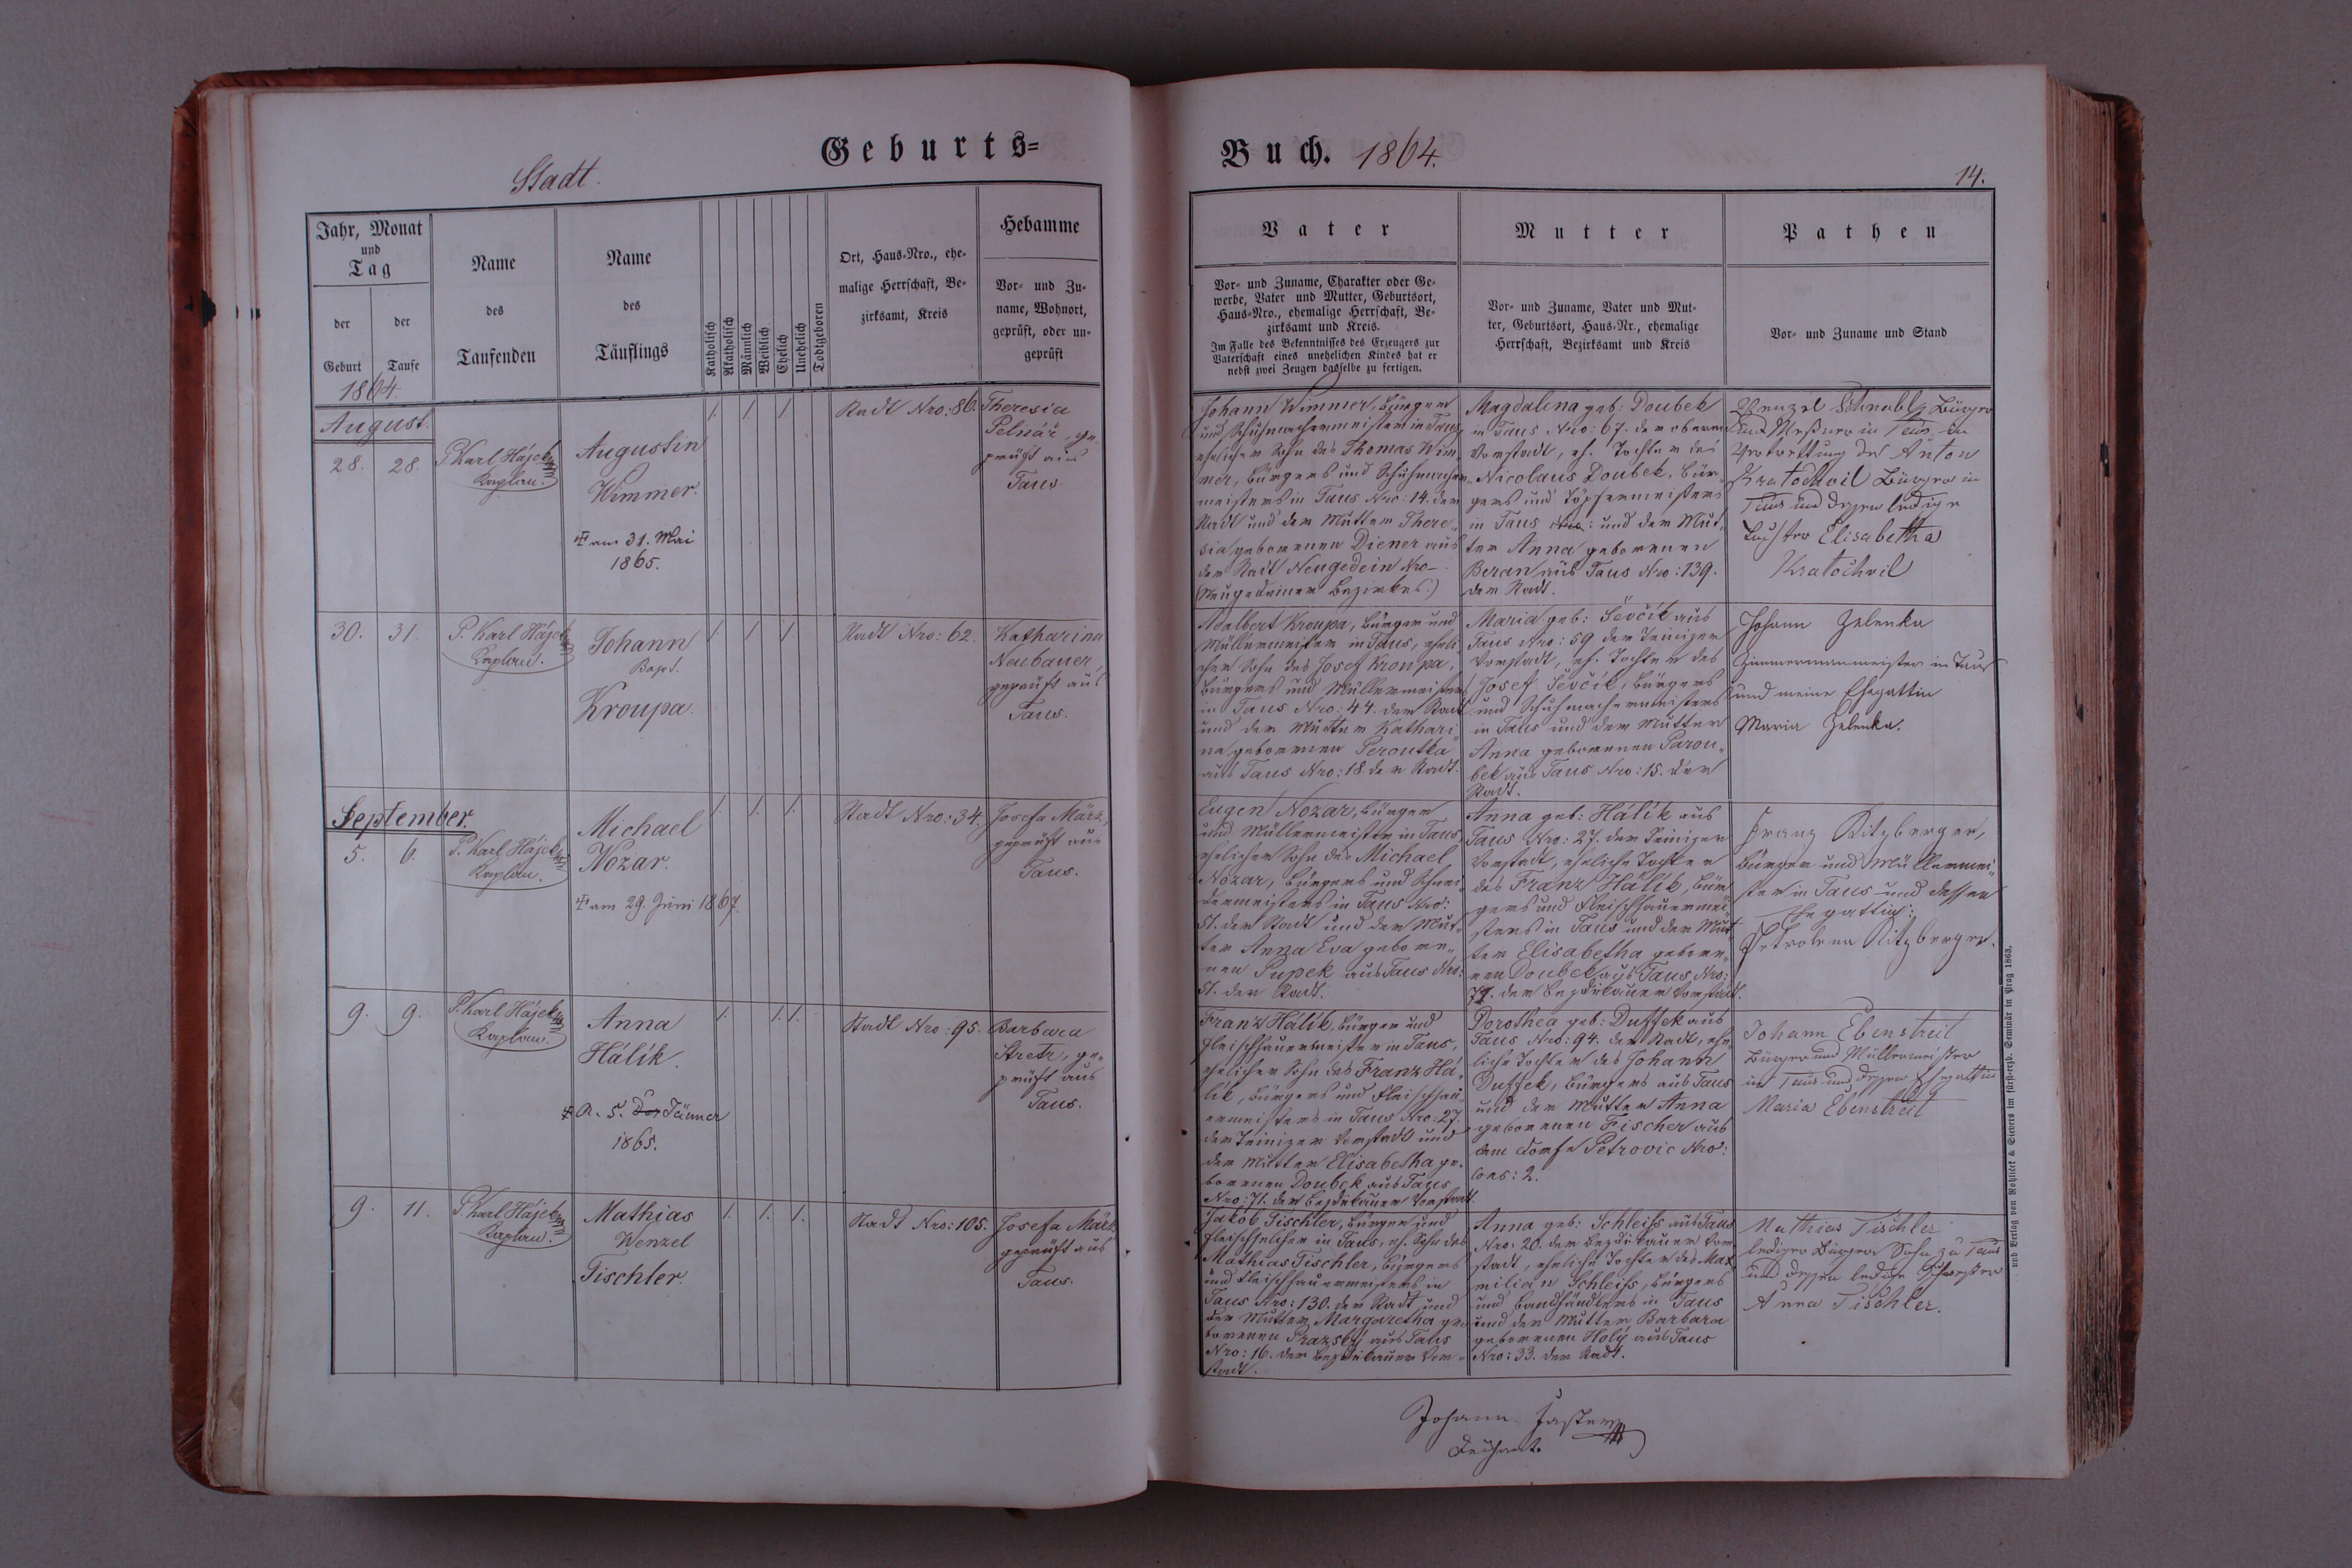 Stadt.
Geburts=
Jahr, Monat
und
Tag
der
Geburt
der
Taufe
Name
des
Taufenden
Name
des
Täuflings
Katholisch
Akatholisch
Männlich
Weiblich
Ehelich
Unehelich
Todtgeboren
Ort, Haus-Nro., ehe-
malige Herrschaft, Be-
zirksamt, Kreis
Hebamme
Vor- und Zu-
name, Wohnort,
geprüft, oder un-
geprüft
1864.
August.
28. 28.
P. Karl Hájek
Kaplan.
Augustin
Wimmer.
am 31. Mai
1865.
1. 1. 1.
Stadt Nro: 86.
Theresia
Pelnář, ge-
prüft aus
Taus.
30. 31.
P. Karl Hájek
Kaplan.
Johann
Bapt.
Kroupa
1. 1. 1.
Stadt Nro: 62.
Katharina
Neubauer,
geprüft aus
Taus.
September.
5. 6.
P. Karl Hájek
Kaplan.
Michael
Nozar.
am 29. Juni 1867.
1. 1. 1.
Stadt Nro: 34.
Josefa März,
geprüft aus
Taus.
9. 9.
P. Karl Hájek
Kaplan.
Anna
Hálík.
a. 5. Jänner
1865.
1. 1. 1.
Stadt Nro: 95.
Barbara
Stretz, ge-
prüft aus
Taus.
9. 11.
P. Karl Hájek
Kaplan.
Mathias
Wenzel
Tischler.
1. 1. 1.
Stadt Nro: 105.
Josefa März
geprüft aus
Taus.
Buch. 1864.
14.
Vater
Vor- und Zuname, Charakter oder Ge-
werbe, Vater und Mutter, Geburtsort,
Haus-Nro., ehemalige Herrschaft, Be-
zirksamt und Kreis.
Im Falle des Bekenntnisses des Erzeugers zur
Vaterschaft eines unehelichen Kindes hat er
nebst zwei Zeugen dasselbe zu fertigen.
Mutter
Vor- und Zuname, Vater und Mut-
ter, Geburtsort, Haus-Nr., ehemalige
Herrschaft, Bezirksamt und Kreis
Pathen
Vor- und Zuname und Stand
Johann Wimmer, Bürger
und Schuhmachermeister in Taus,
ehelicher Sohn des Thomas Wim-
mer, Bürgers und Schuhmacher-
meisters in Taus Nro: 14. der
Stadt und der Mutter There-
sia gebornen Diener aus
der Stadt Neugedein Nro -
(Neugedeiner Bezirkes.)
Magdalena geb: Doubek
in Taus Nro: 67. der obern
Vorstadt, eh. Tochter des
Nicolaus Doubek, Bür-
gers und Töpfermeisters
in Taus Nro: und der Mut-
ter Anna gebornen
Beran aus Taus Nro: 139.
der Stadt.
Wenzel Schnabl, Bürger
und Meßner in Taus in
Vertrettung des Anton
Kratochvil Bürger in
Taus und dessen ledige
Elisabetha
Kratochvil
Adalbert Kroupa, Bürger und
Müllermeister in Taus, eheli-
cher Sohn des Josef Kroupa,
Bürgers und Müllermeisters
in Taus Nro: 44. der Stadt
und der Mutter Kathari-
na gebornen Peroutka
aus Taus Nro: 18. der Stadt.
Maria geb: Ševčík aus
Taus Nro: 59 der Teinizer
Vorstadt, eh. Tochter des
Josef Ševčík, Bürgers
und Schuhmachermeisters
in Taus und der Mutter
Anna gebornen Parou-
bek aus Taus Nro: 15. der
Stadt.
Johann Zelenka
Zimmermannmeister in Taus
und meine Ehegattin
Maria Zelenka.
Eugen Nozar, Bürger
und Müllermeister in Taus,
ehelicher Sohn des Michael
Nozar, Bürgers und Schnei-
dermeisters in Taus Nro:
51. der Stadt und der Mut-
ter Anna Eva gebore-
nen Pupek aus Taus Nro:
51. der Stadt.
Anna geb: Hálík aus
Taus Nro: 27. der Teinizer
Vorstadt, eheliche Tochter
des Franz Hálík, Bür-
gers und Fleischhauermei-
sters in Taus und der Mut-
ter Elisabetha gebor-
nen Doubek aus Taus Nro:
71. der Bezděkauer Vorstadt.
Franz Kitzberger,
Bürger und Müllermei-
ster in Taus und dessen
Ehegattin:
Petrolena Kitzberger.
Franz Hálík, Bürger und
Fleischhauermeister in Taus,
ehelicher Sohn des Franz Há-
lík, Bürgers und Fleischhau-
ermeisters in Taus Nro: 27.
der Teinizer Vorstadt und
der Mutter Elisabetha ge-
bornen Doubek aus Taus
Nro: 71. der Bezděkauer Vorstadt.
Dorothea geb: Duffek aus
Taus Nro: 94. der Stadt, ehe-
liche Tochter des Johann
Duffek, Bürgers aus Taus
und der Mutter Anna
gebornen Fischer aus
dem Dorfe Petrovic Nro:
Cons: 2.
Johann Ebenstreit
Bürger und Müllermeister
in Taus und dessen Ehegattin
Maria Ebenstreit
Jakob Tischler, Bürger und
Fleischselcher in Taus, eh. Sohn des
Mathias Tischler, Bürgers
und Fleischhauermeisters in
Taus Nro: 130. der Stadt und
der Mutter Margaretha ge-
bornen Pražský aus Taus
Nro: 16. der Bezděkauer Vor-
stadt.
Anna geb: Schleiss aus Taus
Nro: 20. der Bezděkauer Vor-
stadt, eheliche Tochter des Max-
milian Schleiss, Bürgers
und Bandhändlers in Taus
und der Mutter Barbara
gebornen Holý aus Taus
Nro: 33. der Stadt.
Mathias Tischler
lediger Bürgers Sohn zu Taus
und dessen ledige Schwester
Anna Tischler.
Johann
Dechant.
und Verlag von Rohlíček & Sievers im fürst-erzb. Seminär in Prag 1863.